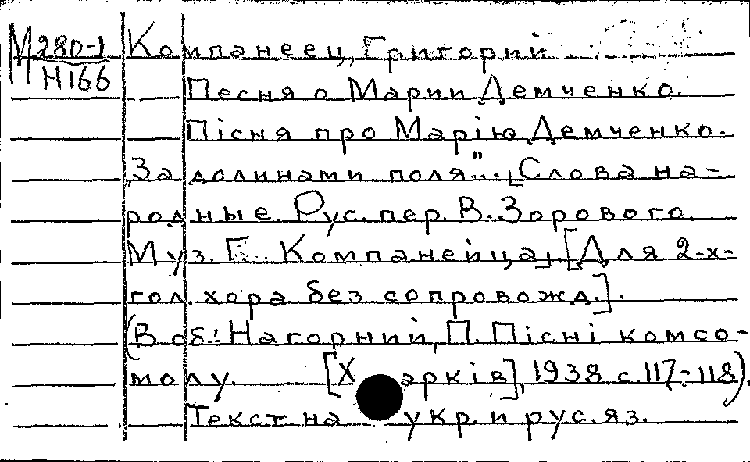 М280-1 Компанеец, Григорий
Н166
Песня о Марии Демченко.
Пісня про Марію Демченко.
„За долинами поля". [Слова на-
родные. Рус. пер. В. Зорового.
Муз. Г. Компанейца]. [Для 2-х-
гол. хора без сопровожд.].
(В сб.: Нагорний, П. Пісні комсо-
молу. [Харків], 1938 с. 117-118).
Текст на укр. и рус. яз.